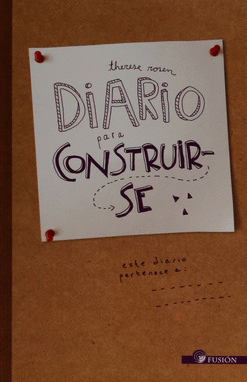 therese rosen
DiARiO
para
CONSTRUIR-
SE
este diario
pertenece a:
FUSIÓN